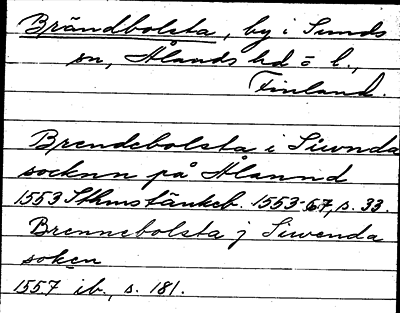 Brändbolsta, by i Sunds
sn, Ålands hd o l.,
Finland.
Brendebolsta i Siwnda
socknn på Ålannd
1553 Sthms tänkeb. 1553-67, s. 33.
Brennebolsta j Siwenda
soken
1557 ib., s. 181.